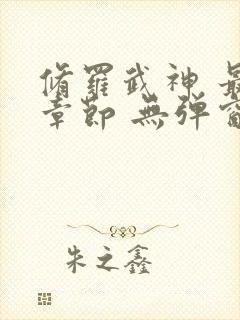 脩羅武神 最
章節 無弹窗
朱之鑫